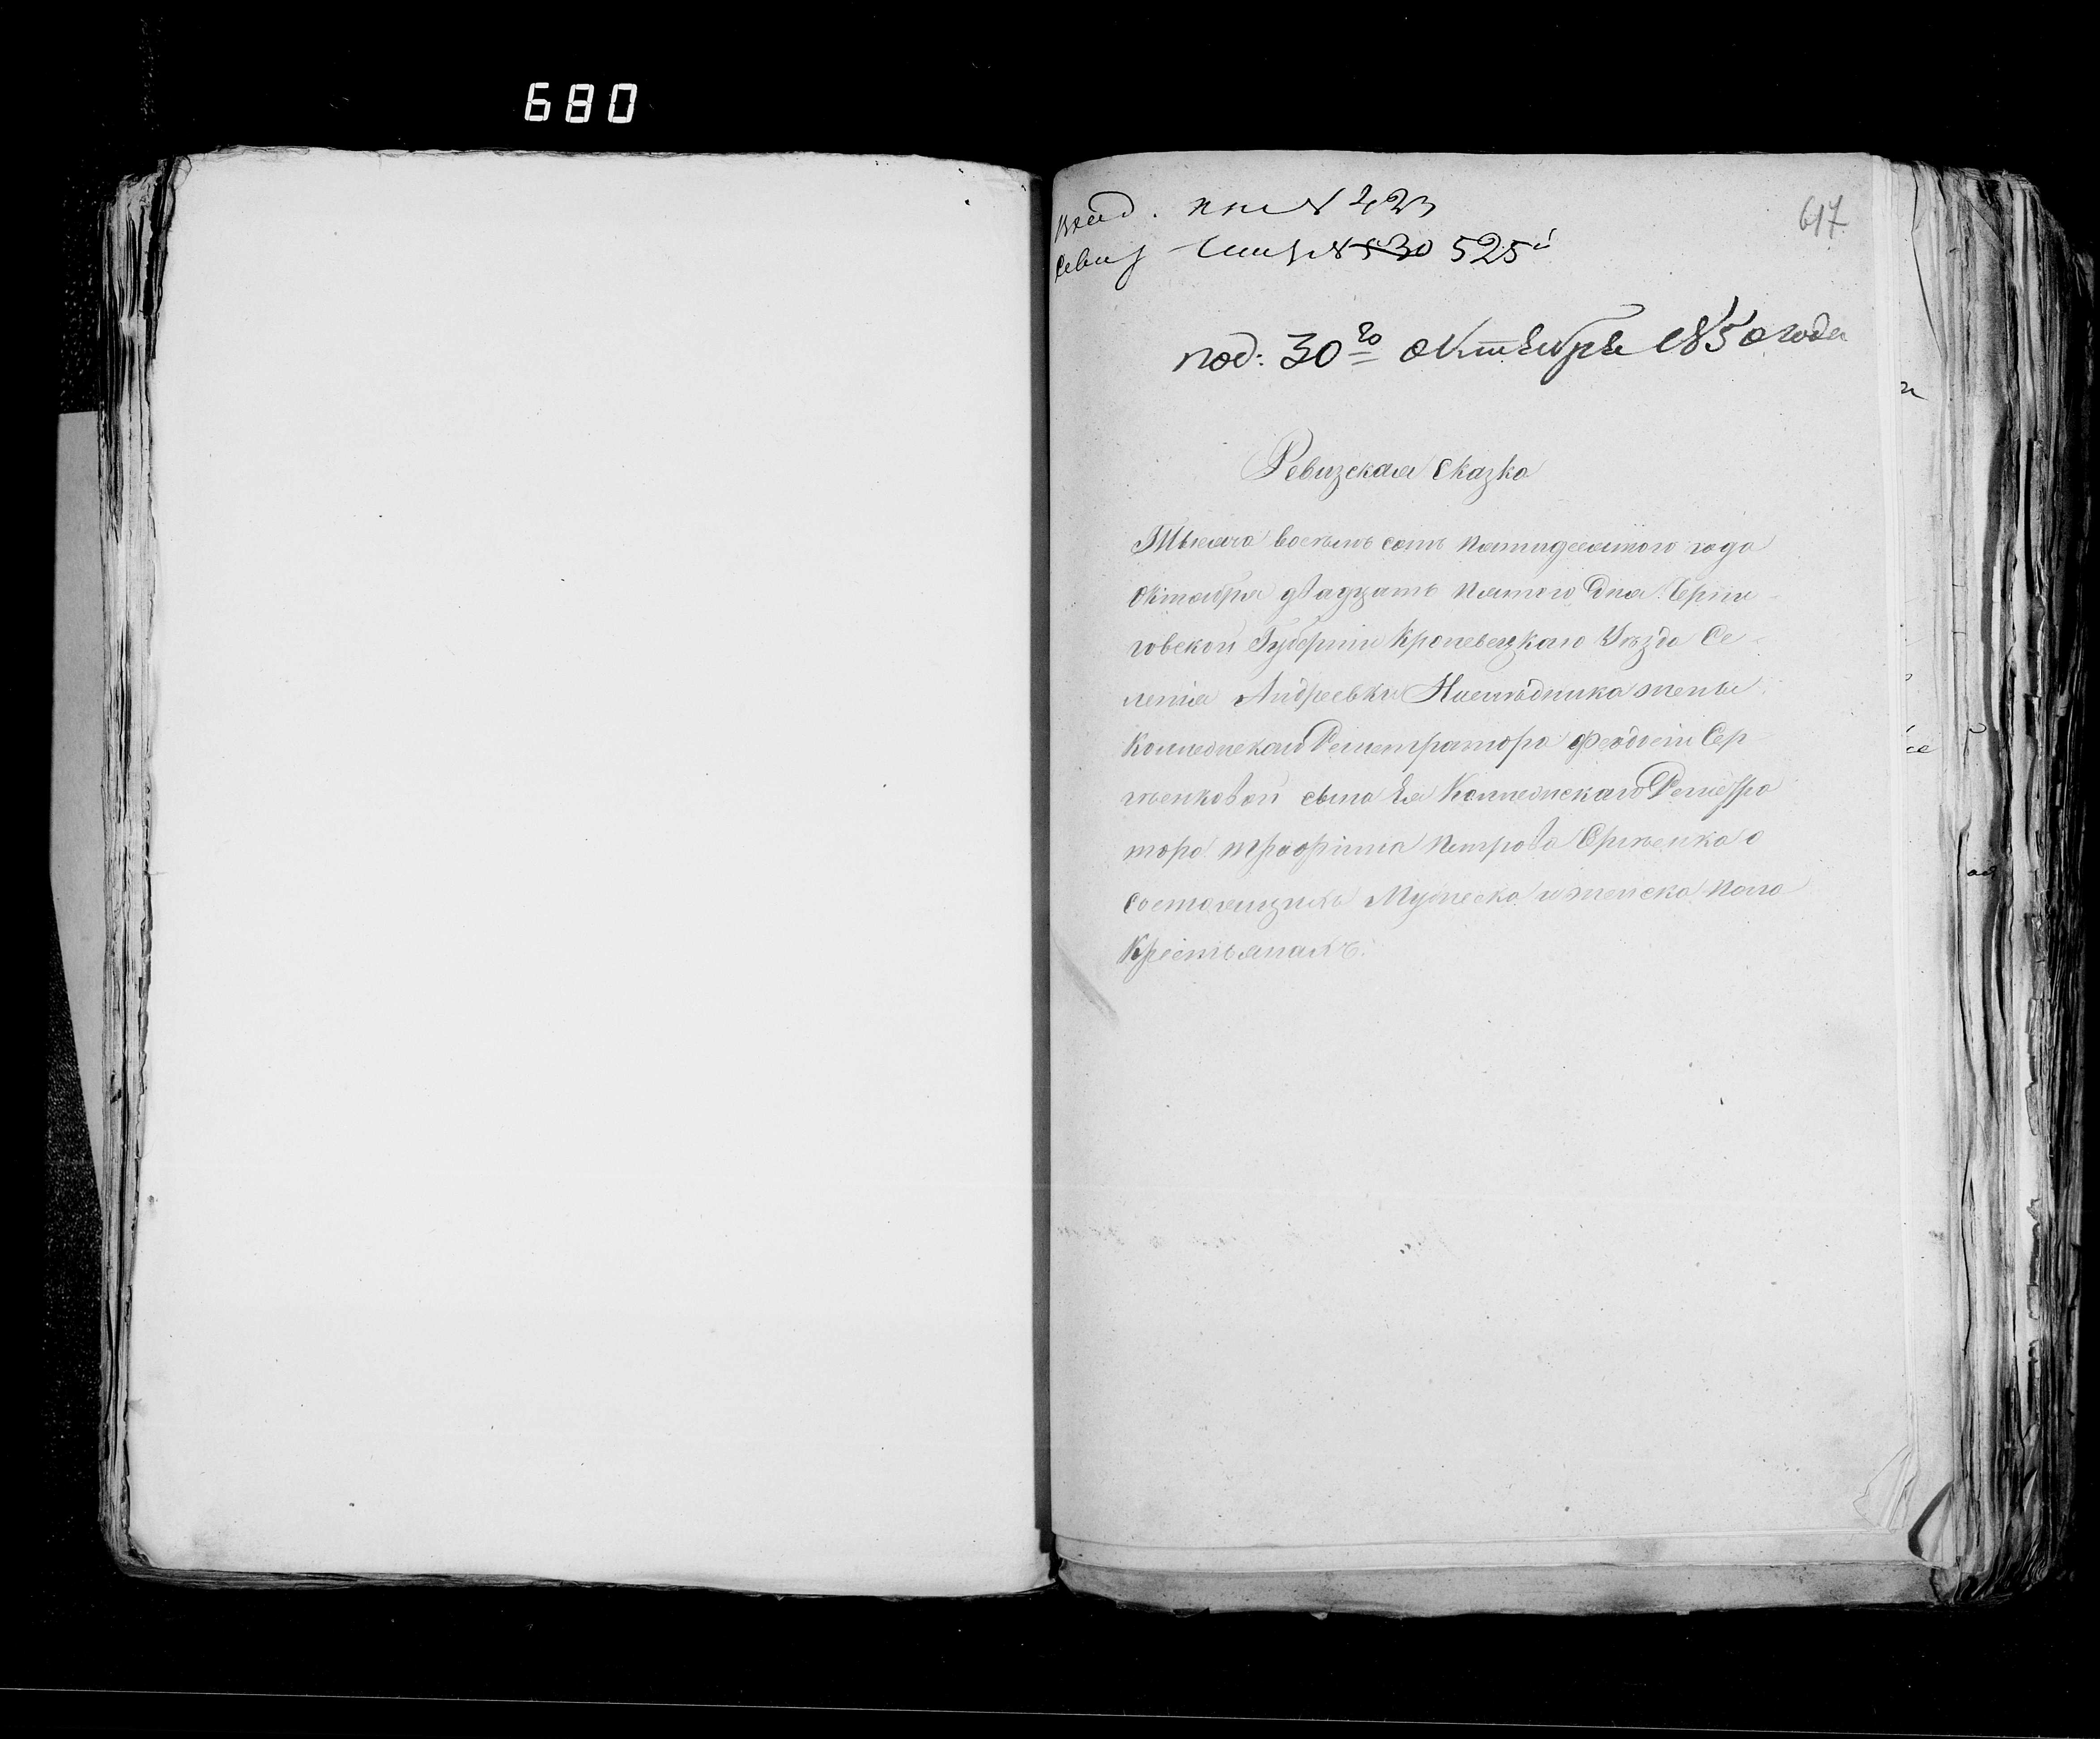 680
617
вход. кни № 423
ревиз № 530 525й
под: 30го октября 1850 года
Ревизская Сказка
Тысяча восемь сотъ пятидесятого года
Октября двадцать пятого Дня. Черни-
говской Губерніи Кролевецкаго Уѣзда Се-
ленія Андреевки Наслѣдника жены
Коллежскаго Регистратора Феодосіи Сер
гѣенковой сына Ея Коллежскаго Регистра
тора Петрова о
состоящихъ Мужеска и женска пола
Крестьянахъ.